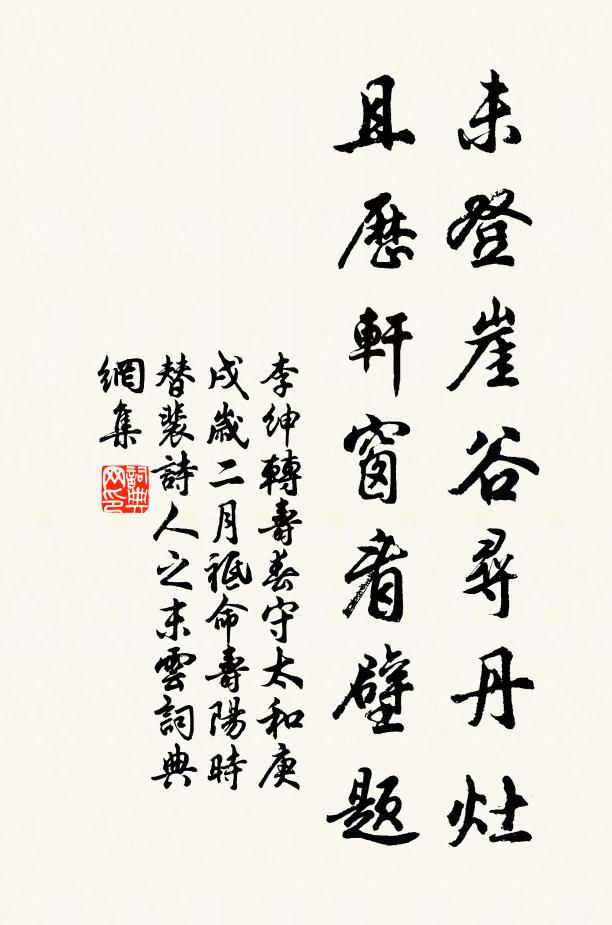 未登崖谷尋丹灶
且歷軒窗看壁題
李紳轉壽春守太和庚
戌歲二月祗命壽陽時
替裴詩人之末雲詞典
網集
詞典网印